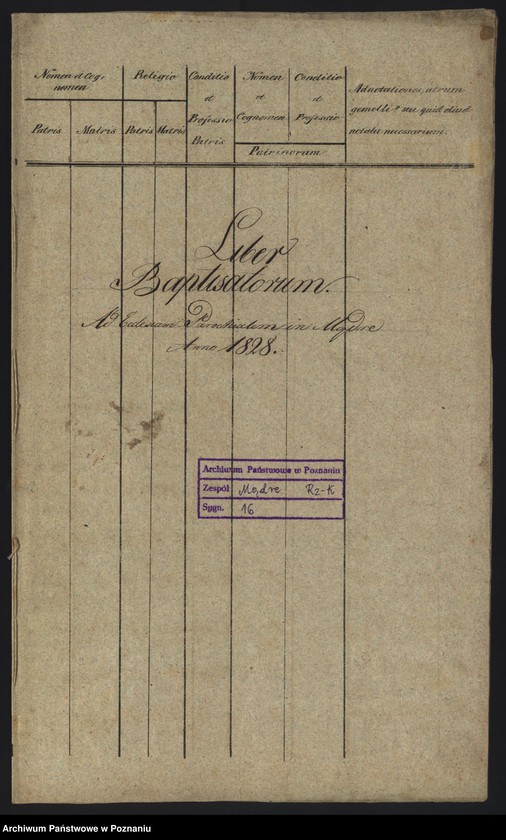 Nomen et Cog-
nomen
Religio
Conditio
et
Professio
Patris
Nomen
et
Cognomen
Conditio
et
Professio
Adnotationes, utrum
gemelli seu quid aliud
notatu necessarium.
Patris
Matris
Patris
Matris
Patrinorum
Liber
Baptisatorum.
Ad Eclesiam Parochialem in Mądre
Anno 1828.
Archiwum Państwowe w Poznaniu
Zespół Mądre Rz-K
Sygn. 16
Archiwum Państwowe w Poznaniu